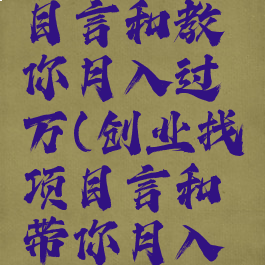 目言和教
你月入过
万(创业找
项目言和
带你月入